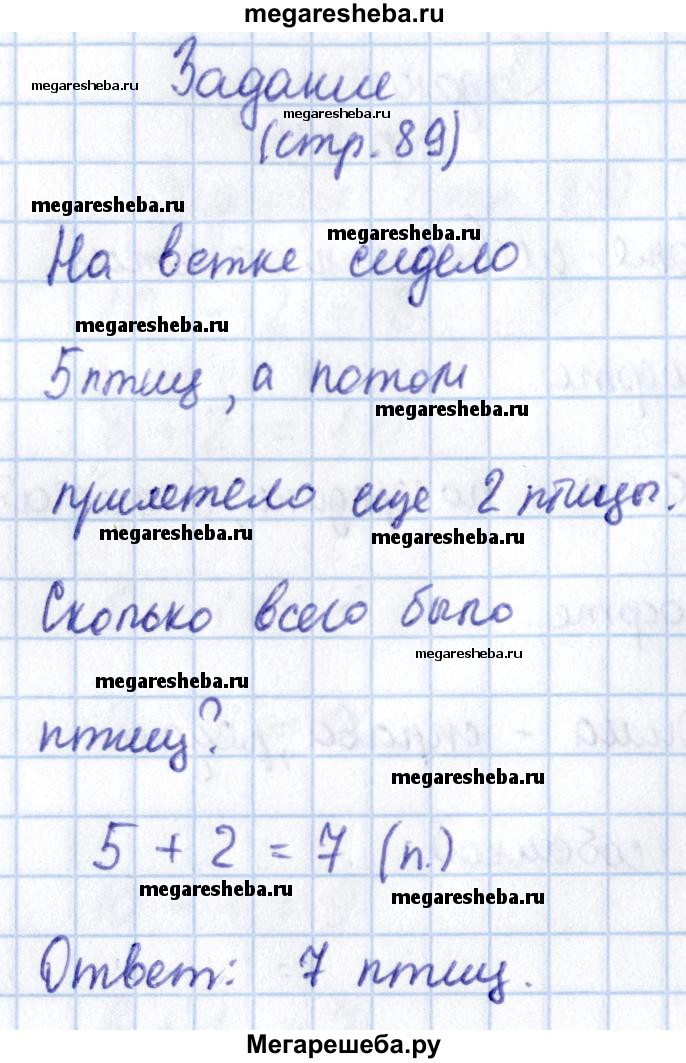 megaresheba.ru
Задание
megaresheba.ru
megaresheba.ru
(стр. 89)
megaresheba.ru
megaresheba.ru
На ветке сидело
megaresheba.ru
5 птиц, а потом
megaresheba.ru
прилетело еще 2 птицы.
megaresheba.ru
megaresheba.ru
Сколько всего было
megaresheba.ru
megaresheba.ru
птиц?
megaresheba.ru
5 + 2 = 7 (п.)
megaresheba.ru
megaresheba.ru
Ответ: 7 птиц.
Мегарешеба.ру